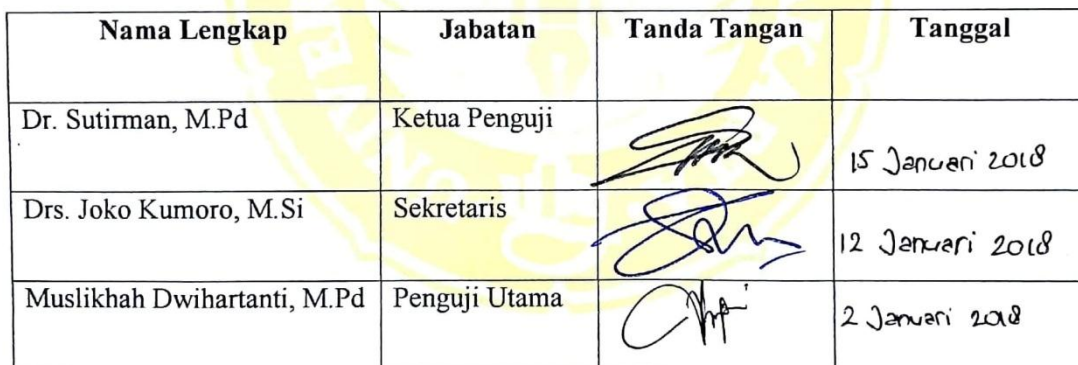 Nama Lengkap Jabatan Tanda Tangan Tanggal
Dr. Sutirman, M.Pd Ketua Penguji 15 Januari 2018
Drs. Joko Kumoro, M.Si Sekretaris 12 Januari 2018
Muslikhah Dwihartanti, M.Pd Penguji Utama 2 Januari 2018